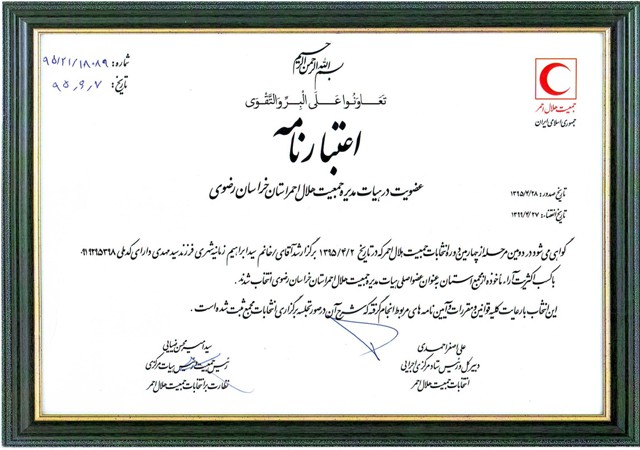 بسم الله الرحمن الرحیم
شماره: ۹۵/۲۱/۱۸۰۸۹
تاریخ: ۹۵،۶،۷
تَعاوَنُوا عَلَی الْبِرِّ وَالتَّقْوی
جمعیت هلال احمر
جمهوری اسلامی ایران
اعتبارنامه
عضویت در هیات مدیره جمعیت هلال احمر استان خراسان رضوی
تاریخ صدور: ۱۳۹۵/۴/۲۸
تاریخ انقضاء: ۱۳۹۹/۴/۲۷
گواهی می شود در دومین مرحله از چهارمین دوره انتخابات جمعیت هلال احمر که در تاریخ ۱۳۹۵/۴/۲ برگزار شد آقای/خانم سید ابراهیم زمانیه شهری فرزند سید مهدی دارای کد ملی ۰۹۱۹۲۹۵۳۹۸
با کسب اکثریت آراء مأخوذه از مجمع استان به عنوان عضو اصلی هیات مدیره جمعیت هلال احمر استان خراسان رضوی انتخاب شدند.
این انتخاب با رعایت کلیه قوانین و مقررات و آیین نامه های مربوط انجام گرفته که شرح آن در صورتجلسه برگزاری انتخابات مجمع ثبت شده است.
علی اصغر احمدی
دبیر کل و رئیس ستاد مرکزی اجرایی
انتخابات جمعیت هلال احمر
سید امیرمحسن ضیایی
رئیس جمعیت و رئیس هیات مرکزی
نظارت بر انتخابات جمعیت هلال احمر